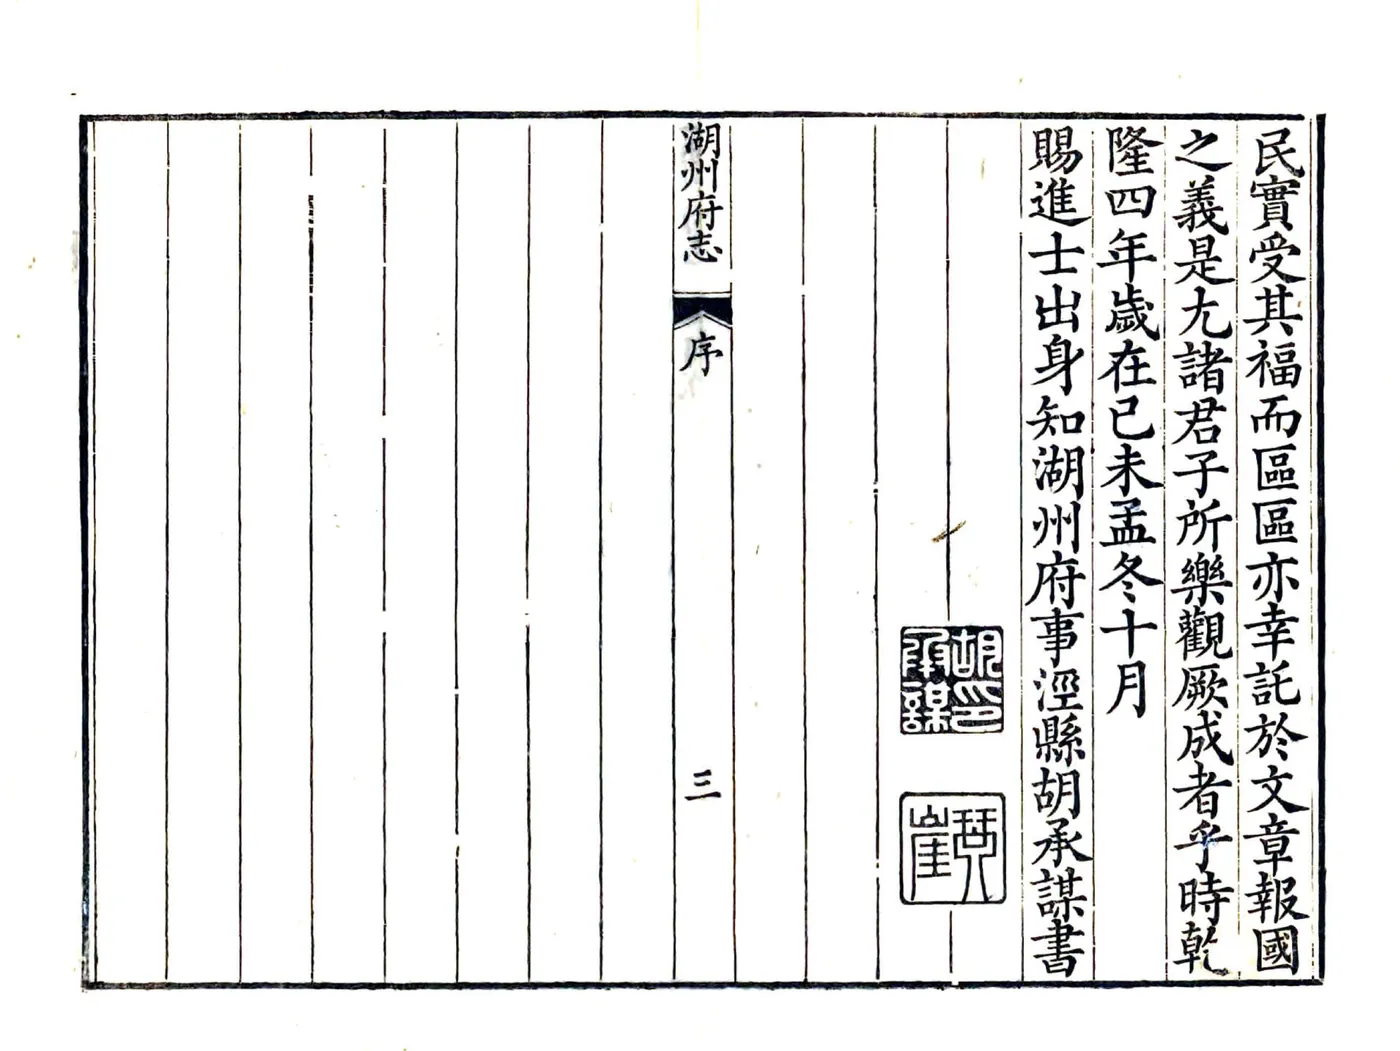 民實受其福而區區亦幸託於文章報國
之義是尢諸君子所樂觀厥成者乎時乾
隆四年歲在已未孟冬十月
賜進士出身知湖州府事涇縣胡承謀書
胡印
承謀
湖州府志
序
三